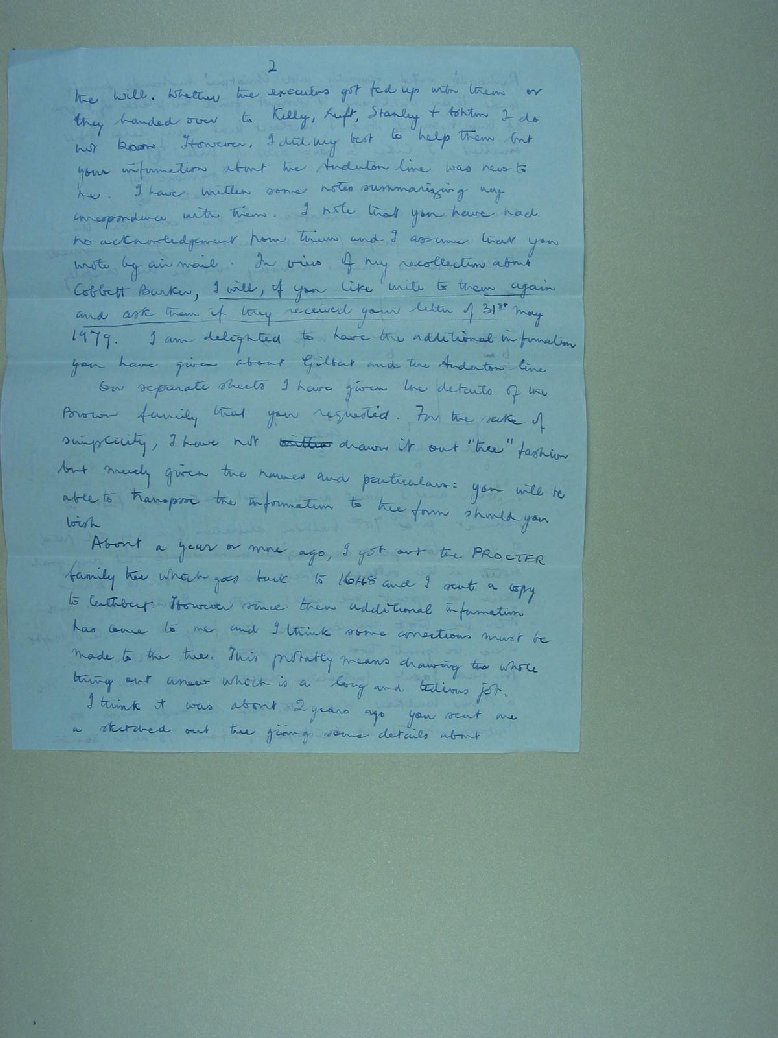 2
the will. Whether the executors got fed up with them or
they handed over to Kelly, Luft, Stanley + Ashton I do
not know. However, I did my best to help them but
your information about the Anderton line was news to
me. I have written some notes summarizing my
correspondence with them. I note that you have had
no acknowledgement from them and I assume that you
wrote by air mail. In view of my recollection about
Cobbett Barker, I will, if you like write to them again
and ask them if they received your letter of 31st May
1979. I am delighted to have the additional information
you have given about Gilbert and the Anderton line
On separate sheets I have given the details of the
Brown family that you requested. For the sake of
simplicity, I have not drawn it out "tree" fashion
but merely given the names and particulars: you will be
able to transpose the information to tree form should you
wish
About a year or more ago, I got out the PROCTER
family tree which goes back to 1648 and I sent a copy
to Cuthbert. However since then additional information
has come to me and I think some corrections must be
made to the tree. This probably means drawing the whole
thing out anew which is a long and tedious job.
I think it was about 2 years ago you sent me
a sketched out tree giving some details about